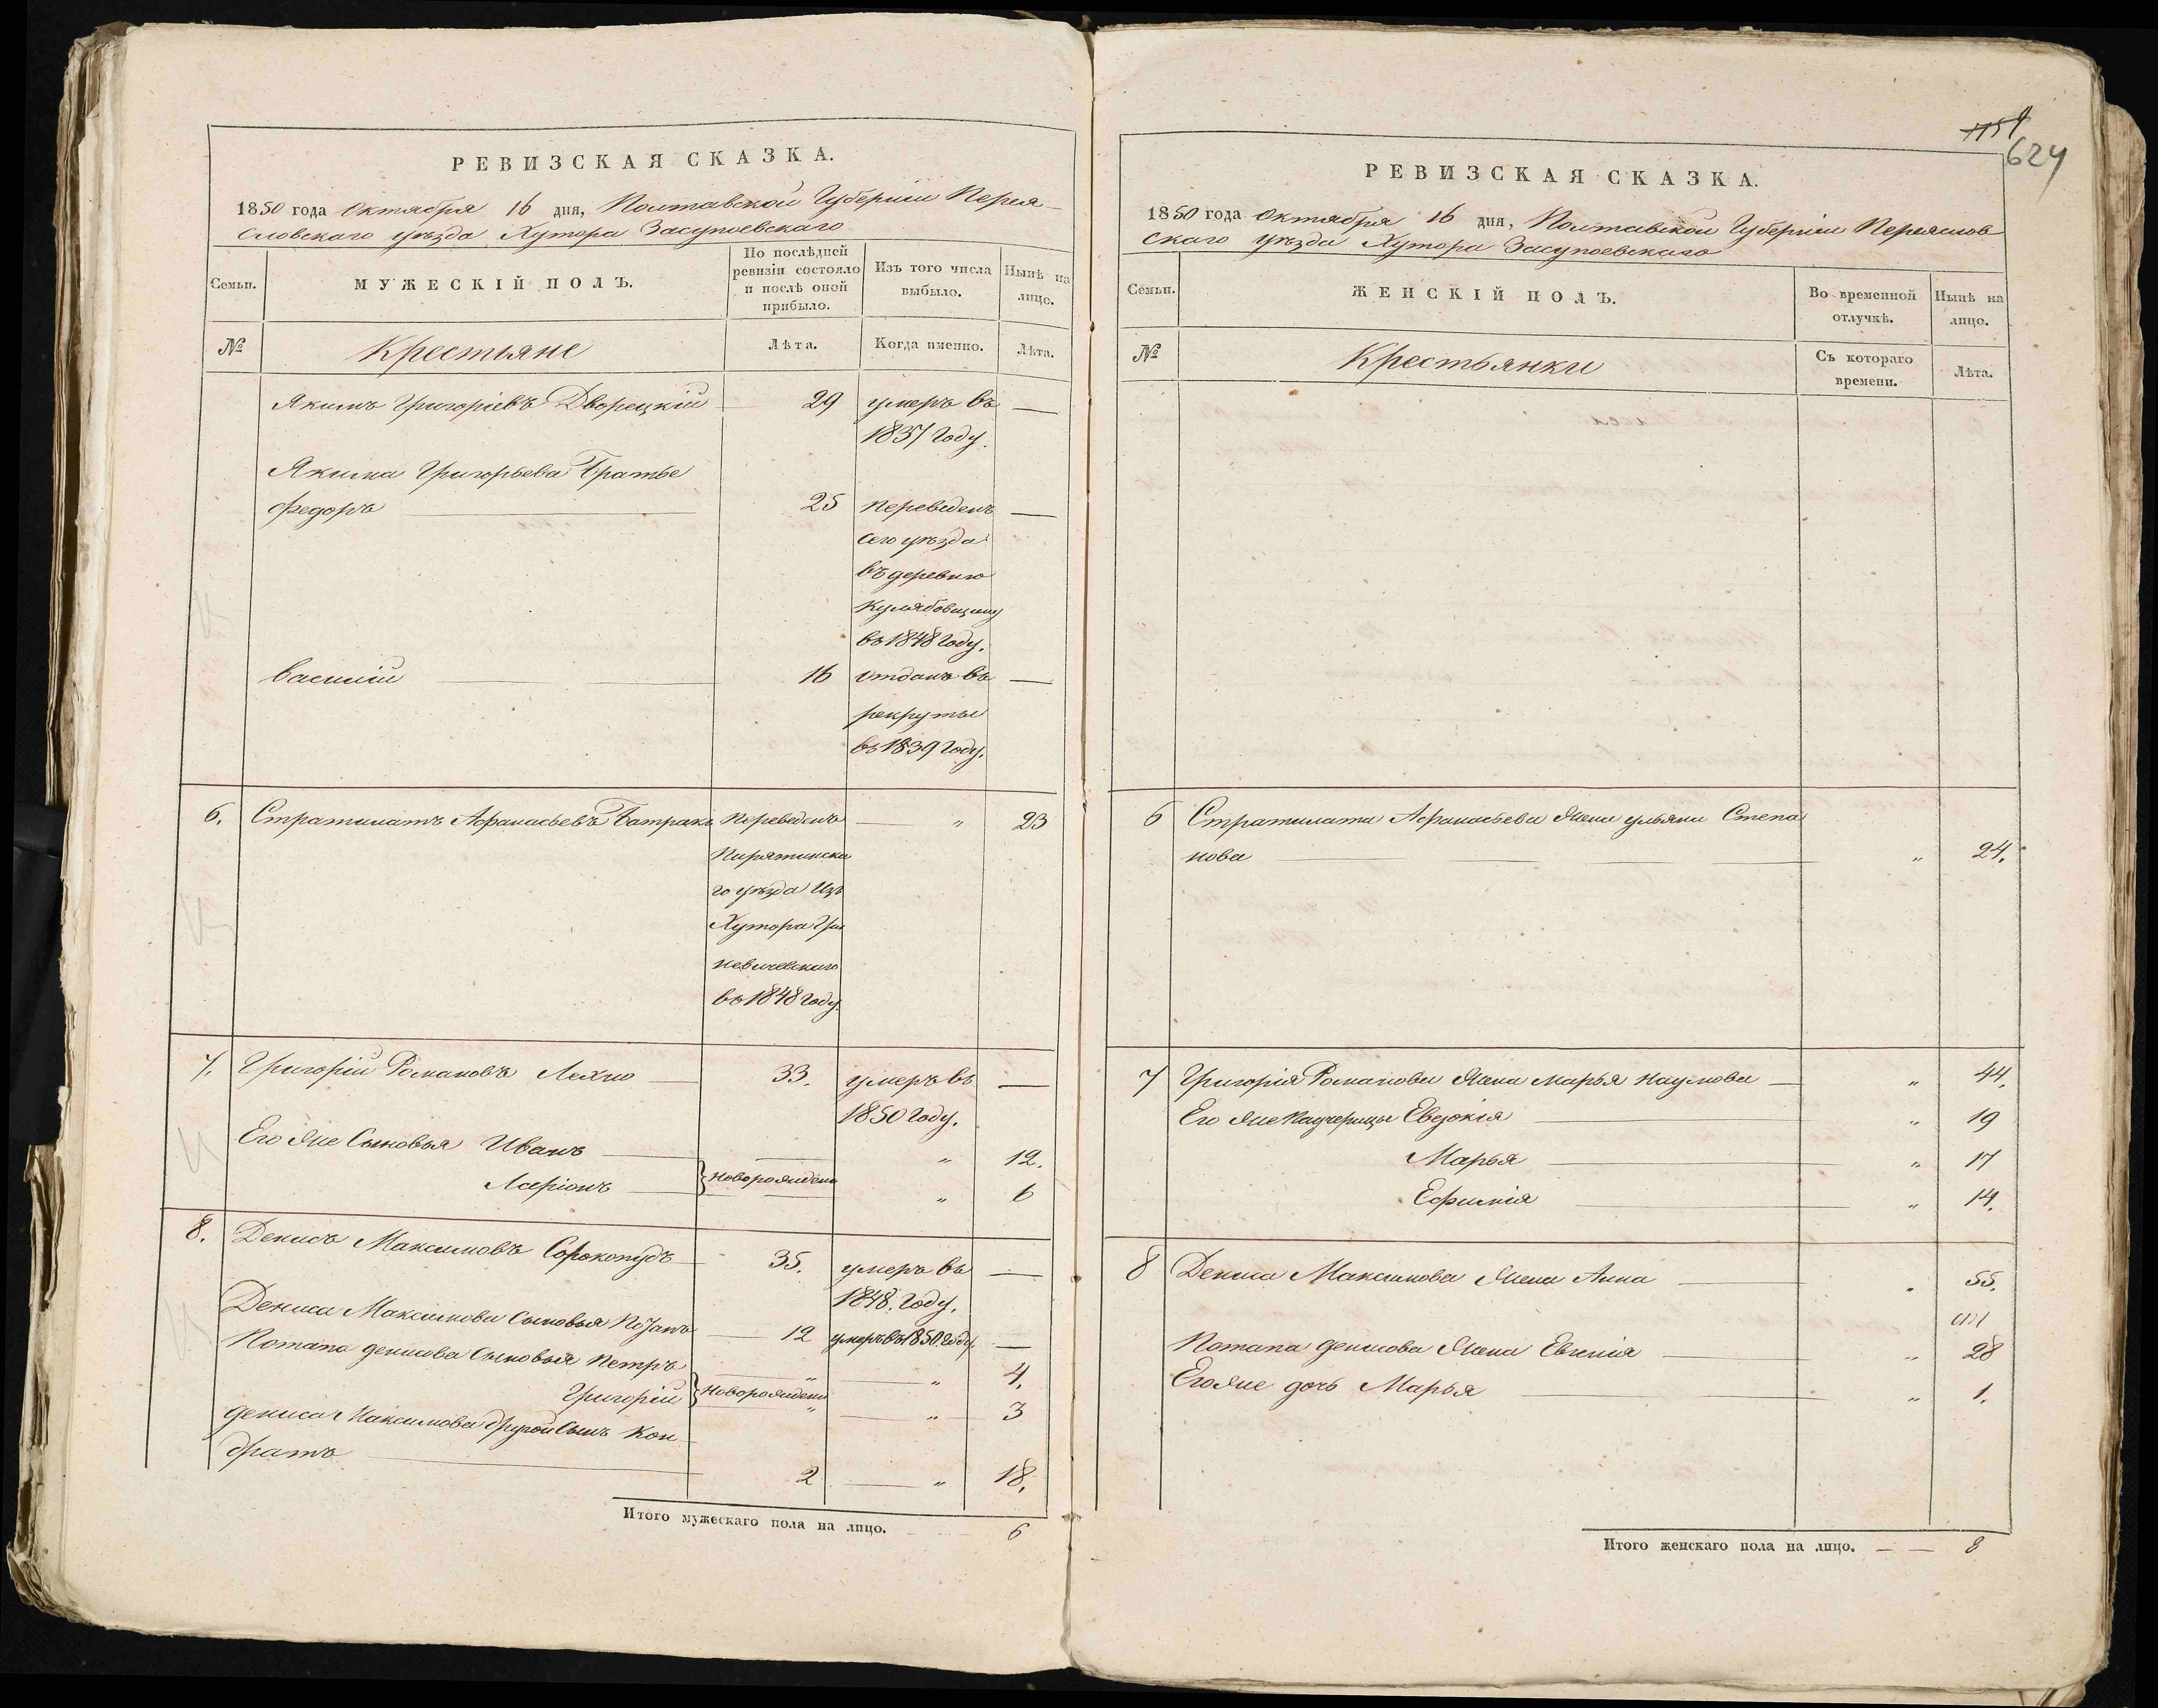 РЕВИЗСКАЯ СКАЗКА.
1850 года Октября 16 дня, Полтавской Губерніи Перея
словскаго уѣзда Хутора Засупоевскаго
Семьи.
МУЖЕСКІЙ ПОЛЪ.
По послѣдней ревизіи состояло и послѣ оной прибыло.
Изъ того числа выбыло.
Нынѣ на лицо.
№
Крестьяне
Лѣта.
Когда именно.
Лѣта.
Якимъ Григоріевъ Дворецкій 29 умеръ въ —
1837 году.
Якима Григорьева Братье
Федоръ 25 переведенъ —
сего уѣзда
въ деревню
Кулябовщину
въ 1848 году.
Василій 16 отданъ въ —
рекруты
въ 1839 году.
6. Стратилатъ Афанасьевъ Батракъ переведенъ — " 23
Пирятинска
го уѣзда изъ
Хутора
въ 1848 году.
7. Григорій Романовъ Лехно 33. умеръ въ —
1850 году.
Его же Сыновья Иванъ — " 12.
новорожденн
Ларіонъ — " 6
8. Денисъ Максимовъ Сорокопудъ 35. умеръ въ —
1848. году.
Дениса Максимова сыновья Потапъ 12 умеръ въ 1850 году. —
Потапа денисова Сыновья Петръ " — " 4.
новорожденн
Григорій " " 3
дениса Максимова другой Сынъ Кон
дратъ 2 — " 18.
Итого мужескаго пола на лицо. 6
1151
624
РЕВИЗСКАЯ СКАЗКА.
1850 года Октября 16 дня, Полтавской Губерніи Переяслов
скаго уѣзда Хутора Засупоевскаго
Семьи.
ЖЕНСКІЙ ПОЛЪ.
Во временной отлучкѣ.
Нынѣ на лицо.
№
Крестьянки
Съ котораго времени.
Лѣта.
6 Стратилата Афанасьева жена ульяна Степа
нова " 24.
7 Григорія Романова жена марья наумова — " 44.
Его же падчерицы Евдокія " 19
Марья " 17
Ефимія " 14.
8 Дениса Максимова жена Анна " 55.
Потапа денисова жена Евгенія " 28
Его же дочь Марья " 1.
Итого женскаго пола на лицо. — — 8